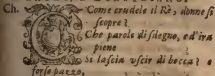 Ch. Come crudele il Rè, donne si
scopre?
Che parole di sdegno, ed'ira
piene
Si lascia vscir di bocca? e
forse pazzo,